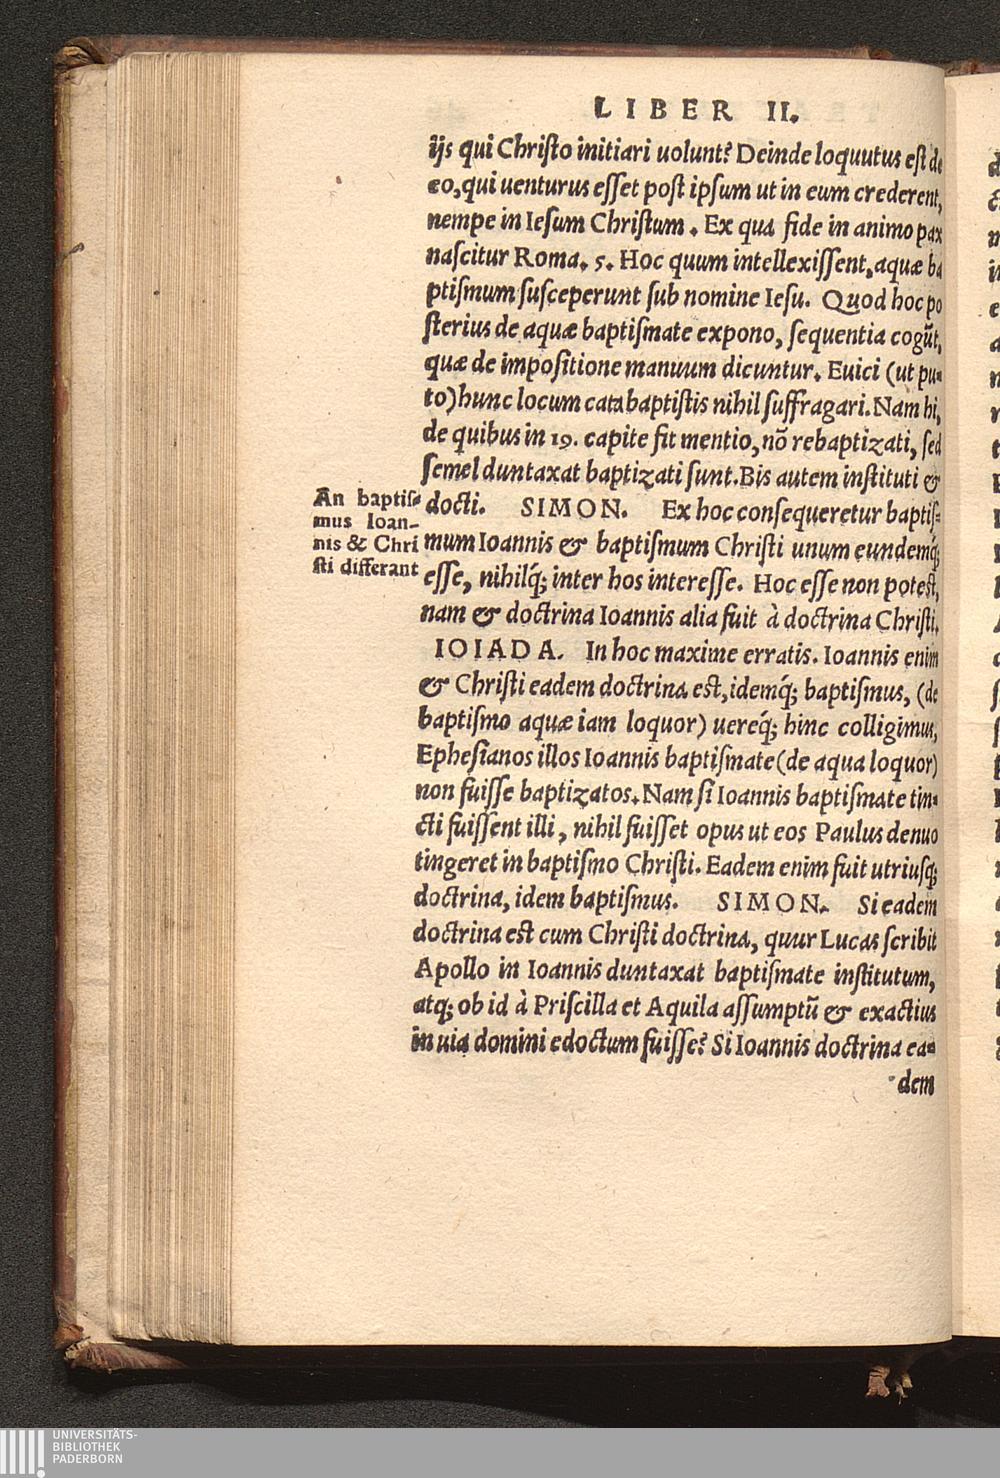 LIBER II.
ijs qui Chriſto initiari uolunt? Deinde loquutus eſt de
eo, qui uenturus eſſet poſt ipſum ut in eum crederent,
nempe in Ieſum Chriſtum. Ex qua fide in animo pax
naſcitur Roma. 5. Hoc quum intellexiſſent, aquæ ba
ptiſmum ſuſceperunt ſub nomine Ieſu. Quod hoc po
ſterius de aquæ baptiſmate expono, ſequentia cogūt,
quæ de impoſitione manuum dicuntur. Euici (ut pu-
to) hunc locum catabaptiſtis nihil ſuffragari. Nam hi,
de quibus in 19. capite fit mentio, nō rebaptizati, ſed
ſemel duntaxat baptizati ſunt. Bis autem inſtituti &
docti. SIMON. Ex hoc conſequeretur baptiſ-
mum Ioannis & baptiſmum Chriſti unum eundemq́;
eſſe, nihilq́; inter hos intereſſe. Hoc eſſe non poteſt,
nam & doctrina Ioannis alia fuit à doctrina Chriſti.
An baptiſ-
mus Ioan-
nis & Chri
ſti differant
IOIADA. In hoc maxime erratis. Ioannis enim
& Chriſti eadem doctrina eſt, idemq́; baptiſmus, (de
baptiſmo aquæ iam loquor) uereq́; hinc colligimus,
Epheſianos illos Ioannis baptiſmate (de aqua loquor)
non fuiſſe baptizatos. Nam ſi Ioannis baptiſmate tin-
cti fuiſſent illi, nihil fuiſſet opus ut eos Paulus denuo
tingeret in baptiſmo Chriſti. Eadem enim fuit utriuſq;
doctrina, idem baptiſmus. SIMON. Si eadem
doctrina eſt cum Chriſti doctrina, quur Lucas ſcribit
Apollo in Ioannis duntaxat baptiſmate inſtitutum,
atq; ob id à Priſcilla et Aquila aſſumptū & exactius
in uia domini edoctum fuiſſe? Si Ioannis doctrina ea-
dem
UNIVERSITÄTS-
BIBLIOTHEK
PADERBORN